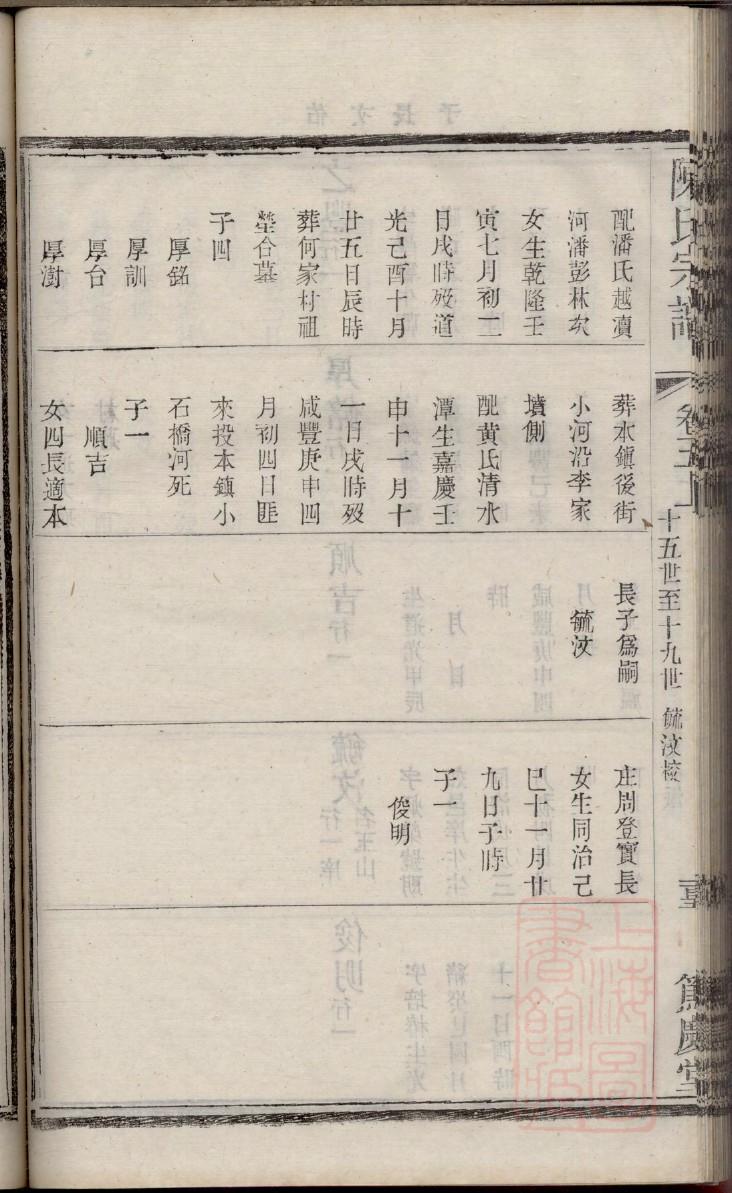 陳氏宗譜
十五世至十九世
毓汶校
篤慶堂
配潘氏越瀆
河潘彭林次
女生乾隆壬
寅七月初二
日戌時歿道
光己酉十月
廿五日辰時
葬何家村祖
塋合墓
子四
厚銘
厚訓
厚台
厚澍
葬本鎮後街
小河沿李家
墳側
配黄氏清水
潭生嘉慶壬
申十一月十
一日戌時歿
咸豐庚申四
月初四日匪
來投本鎮小
石橋河死
子一
順吉
女四長適本
長子爲嗣
毓汶
庄周登寶長
女生同治己
巳十一月廿
九日子時
子一
俊明
上海圖
書館藏